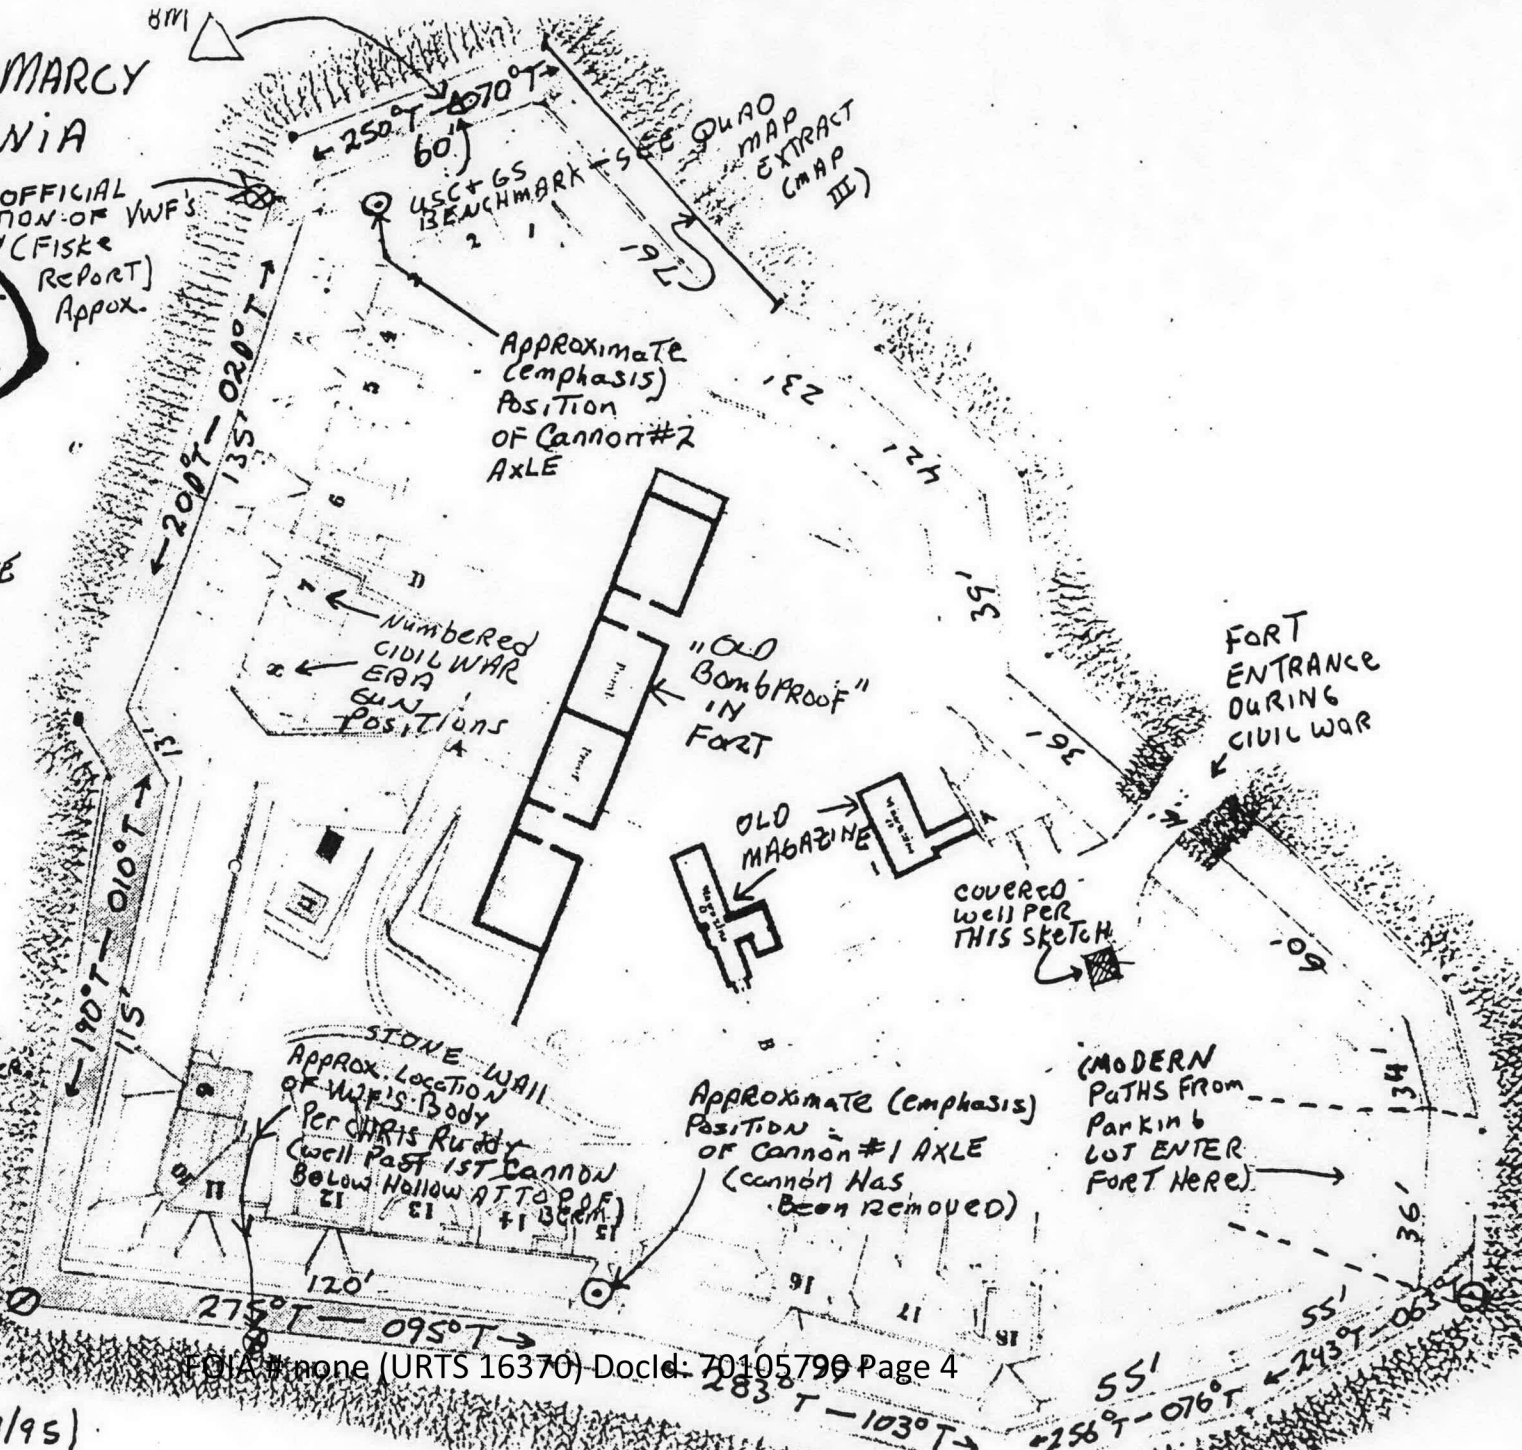 BM
MARCY
NIA
OFFICIAL
TION OF VWF'S
(FISKE
REPORT)
Appox.
250°T — 070°T
60'
USC + GS
BENCHMARK - SEE QUAD
MAP
EXTRACT
(MAP
III)
76'
2
1
3
4
5
6
7
8
D
200°T — 020°T
135'
Approximate
(emphasis)
Position
OF Cannon #2
AXLE
23'
42'
39'
36'
Numbered
CIVIL WAR
ERA
GUN
Positions
A
"OLD
BombPROOF"
IN
FORT
Proof
Proof
FORT
ENTRANCE
DURING
CIVIL WAR
OLD
MAGAZINE
Magazine
Magazine
A
COVERED
well PER
THIS SKETCH
60'
13'
190°T — 010°T
115'
H
STONE WALL
APPROX. LOCATION
OF VWF'S Body
Per CHRIS Ruddy
(well Past 1ST Cannon
BELOW Hollow AT TOP OF
BERM)
9
10
11
12
13
14
15
B
Approximate (emphasis)
Position
OF Cannon #1 AXLE
(cannon Has
Been Removed)
(MODERN
PATHS FROM
Parking
LOT ENTER
FORT HERE)
34'
36'
16
17
18
120'
275°T — 095°T
55'
243°T — 063°T
55'
256°T — 076°T
283°T — 103°T
FOIA # none (URTS 16370) DocId: 70105790 Page 4
/95)